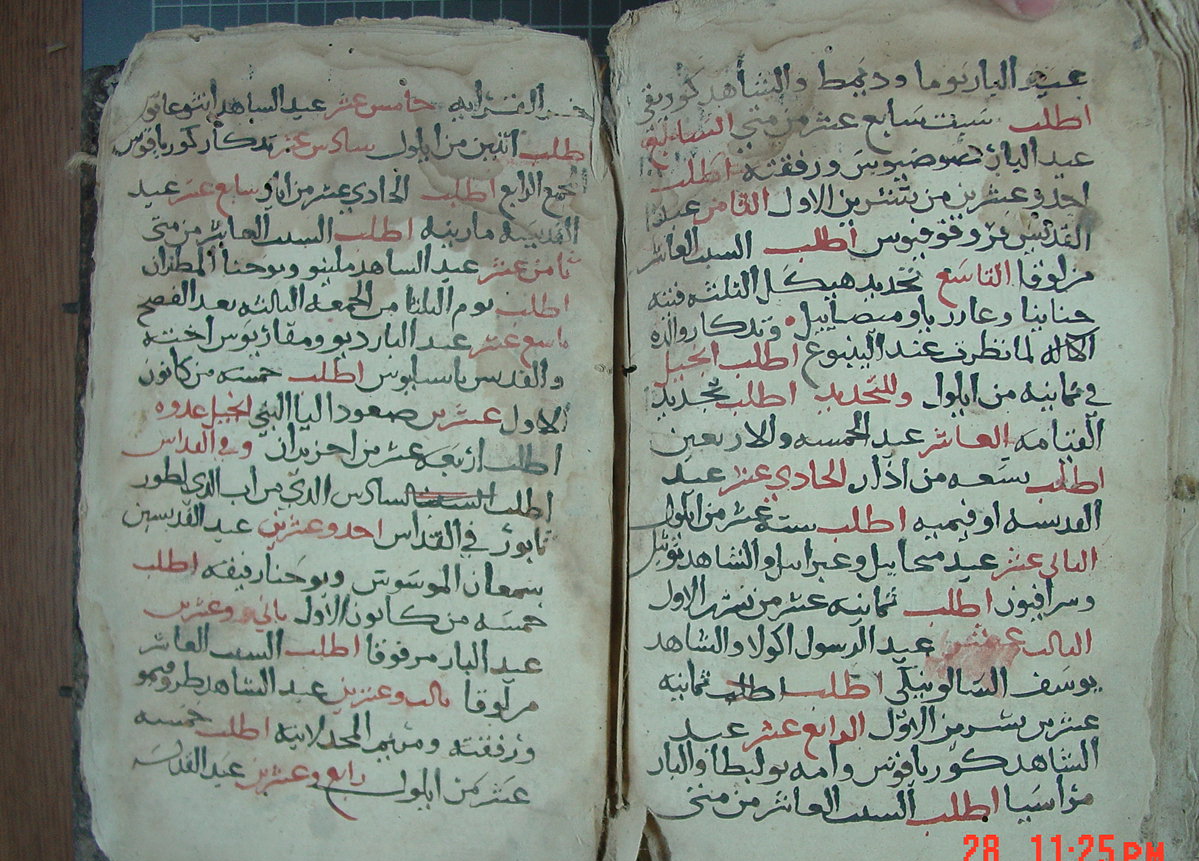 عيد البار توما ودممط والشاهد كوريقي
اطلب سبت سابع عشر من متي السابع
عيد البار صوصيوس ورفقته اطلب
احدوعشرين من تشرين الاول الثامن عيد
القديس بروقوفيوس اطلب السبت العاشر
من لوقا التاسع تجديد هيكل الثلثه فتيه
حنانيا وعازريا وميصاييل وتدكار والدة
الاله لما نظرت عند الينبوع اطلب انجيل
في ثمانيه من ايلول وللتجديد اطلب تجديد
القيامه العاشر عيد الخمسه والاربعين
اطلب تسعه من اذار الحادي عشر عيد
القديسه اوفيميه اطلب ستة عشر من ايلول
الثاني عشر عيد ميخاييل وغبراييل والشاهد
وسرافيون اطلب ثمانيه عشر من تشرين الاول
الثالث عشر عيد الرسول اكولا والشاهد
يوسف السالونيكي اطلب اطلب ثمانيه
عشر من تشرين الاول الرابع عشر عيد
الشاهد كورياقوس وامه يوليطا والبار
مواسيا اطلب السبت العاشر من متي
خامس عشر عيد الشاهد انتوغانس
اطلب اثنين من ايلول سادس عشر تدكار كورياقوس
المجمع الرابع اطلب الحادي عشر من ايلول سابع عشر عيد
القديسه مارينه اطلب السبت العاشر من متي
ثامن عشر عيد الشاهد مليتو ويوحنا المطران
اطلب يوم الثلثا من الجمعه الثالثه بعد الفصح
تاسع عشر عيد البار ديو ومقاريوس اخته
والقديس باسيليوس اطلب خمسه من كانون
الاول عشرين صعود اليا النبي انجيل غدوه
اطلب اربعه عشر من احزيران وفي القداس
اطلب السبت السادس الدي من اب الدي لطور
تابور في القداس احدوعشرين عيد القديسين
سمعان الموسوس ويوحنا رفيقه اطلب
خمسه من كانون الاول ثاني وعشرين
عيد البار مرفوقا اطلب السبت العاشر
من لوقا ثالث وعشرين عيد الشاهد طروفيمو
ورفقته ومريم المجدلانيه اطلب خمسه
عشر من ايلول رابع وعشرين عيد القديسه
28 11:25 PM